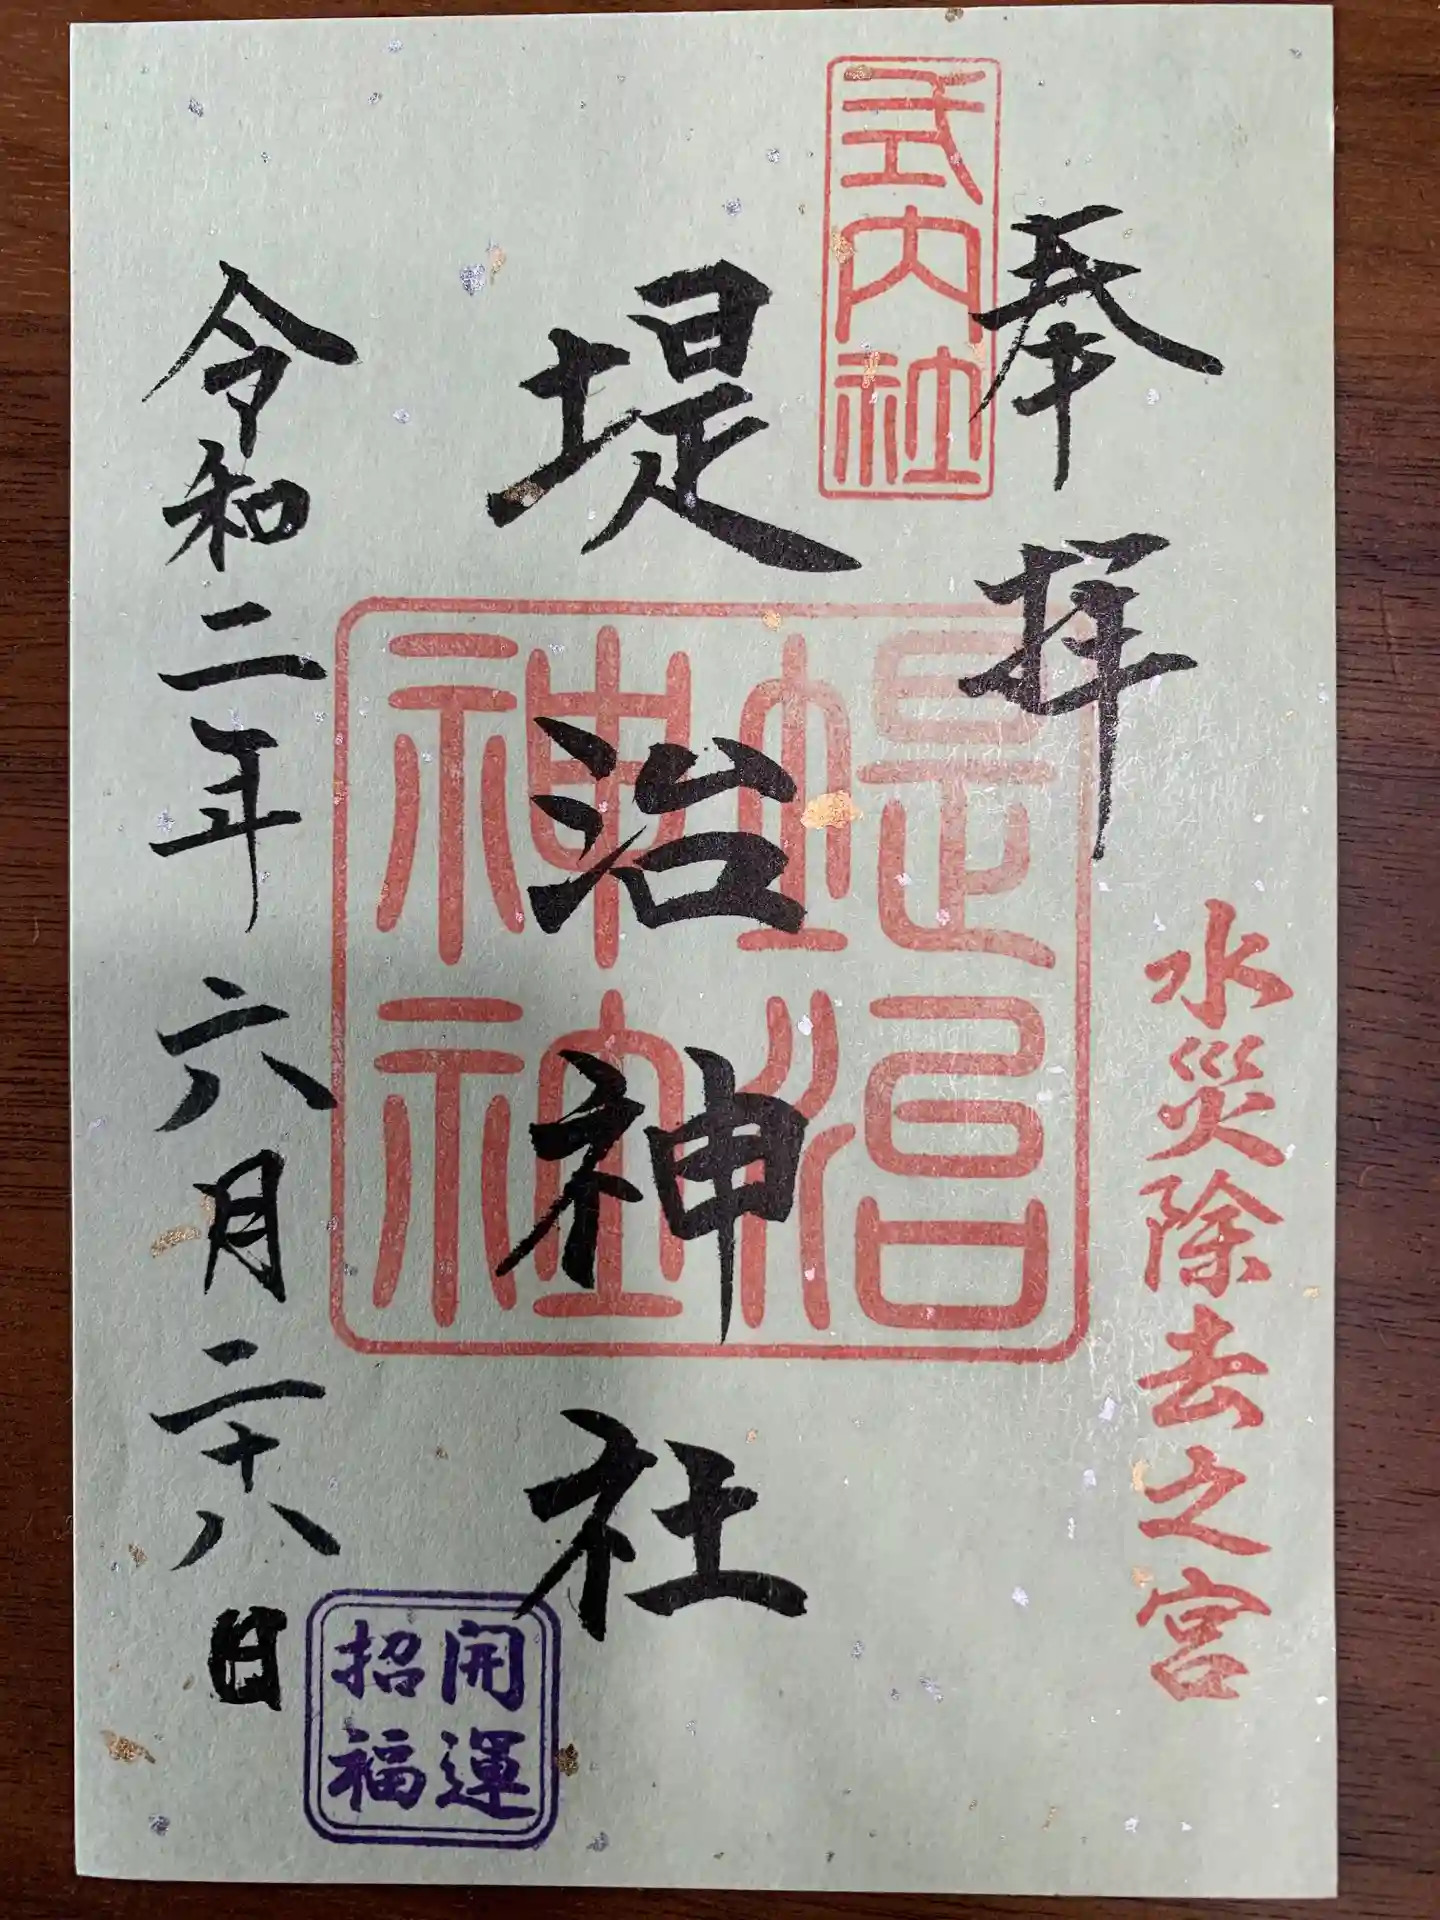 奉拝
水災除去之宮
式内社
堤治神社
堤治
神社
令和二年六月二十八日
開運
招福